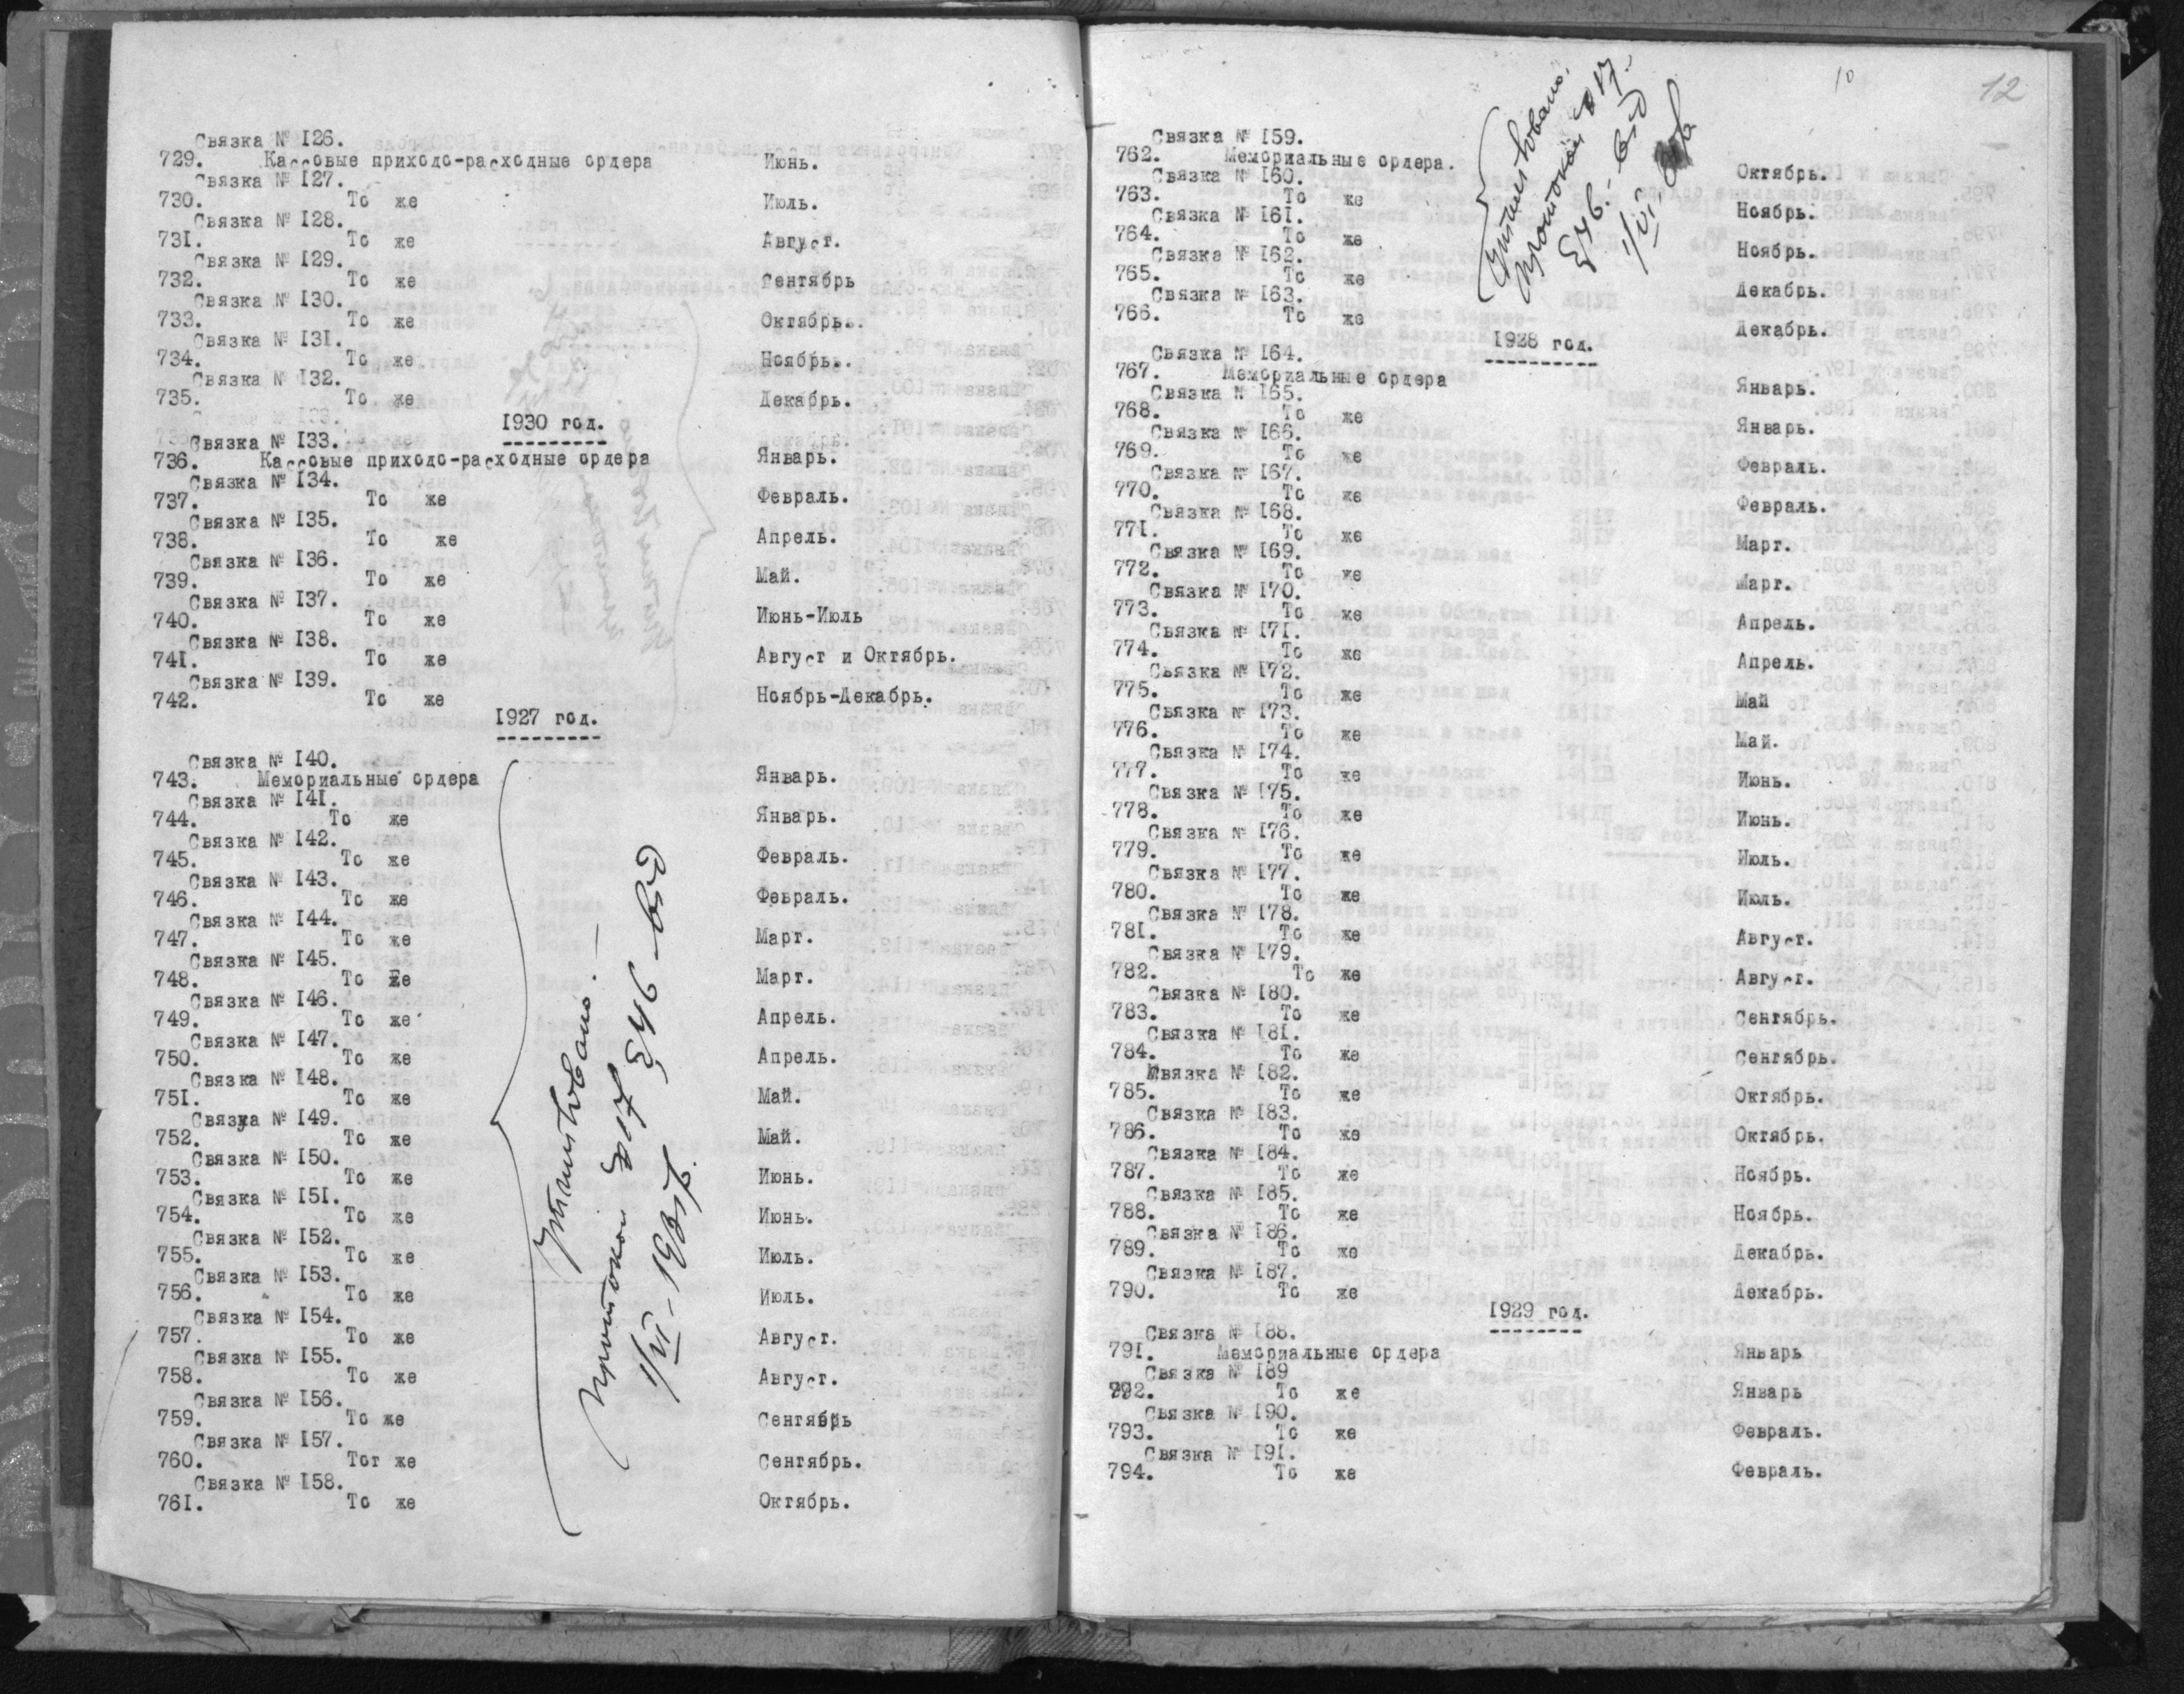 Связка № I26.
729. Кассовые приходо-расходные ордера Июнь.
Связка № I27.
730. То же Июль.
Связка № I28.
73I. То же Август.
Связка № I29.
732. То же Сентябрь
Связка № I30.
733. То же Октябрь..
Связка № I3I.
734. То же Ноябрь..
Связка № I32.
735. То же Декабрь.
I930 год.
Связка № I33.
736. Кассовые приходо-расходные ордера Январь.
Связка № I34.
737. То же Февраль.
Связка № I35.
738. То же Апрель.
Связка № I36.
739. То же Май.
Связка № I37.
740. То же Июнь-Июль
Связка № I38.
74I. То же Август и Октябрь.
Связка № I39.
742. То же Ноябрь-Декабрь.
I927 год.
Связка № I40.
743. Мемориальные ордера Январь.
Связка № I4I.
744. То же Январь.
Связка № I42.
745. То же Февраль.
Связка № I43.
746. То же Февраль.
Связка № I44.
747. То же Март.
Связка № I45.
748. То же Март.
Связка № I46.
749. То же Апрель.
Связка № I47.
750. То же Апрель.
Связка № I48.
75I. То же Май.
Связка № I49.
752. То же Май.
Связка № I50.
753. То же Июнь.
Связка № I5I.
754. То же Июнь.
Связка № I52.
755. То же Июль.
Связка № I53.
756. То же Июль.
Связка № I54.
757. То же Август.
Связка № I55.
758. То же Август.
Связка № I56.
759. То же Сентябрь
Связка № I57.
760. Тот же Сентябрь.
Связка № I58.
76I. То же Октябрь.
Протокол
12
10
Связка № I59.
762. Мемориальные ордера. Октябрь.
Связка № I60.
763. То же Ноябрь.
Связка № I6I.
764. То же Ноябрь.
Связка № I62.
765. То же Декабрь.
Связка № I63.
766. То же Декабрь.
I928 год.
Связка № I64.
767. Мемориальные ордера Январь.
Связка № I65.
768. То же Январь.
Связка № I66.
769. То же Февраль.
Связка № I67.
770. То же Февраль.
Связка № I68.
77I. То же Март.
Связка № I69.
772. То же Март.
Связка № I70.
773. То же Апрель.
Связка № I7I.
774. То же Апрель.
Связка № I72.
775. То же Май
Связка № I73.
776. То же Май.
Связка № I74.
777. То же Июнь.
Связка № I75.
778. То же Июнь.
Связка № I76.
779. То же Июль.
Связка № I77.
780. То же Июль.
Связка № I78.
78I. То же Август.
Связка № I79.
782. То же Август.
Связка № I80.
783. То же Сентябрь.
Связка № I8I.
784. То же Сентябрь.
Связка № I82.
785. То же Октябрь.
Связка № I83.
786. То же Октябрь.
Связка № I84.
787. То же Ноябрь.
Связка № I85.
788. То же Ноябрь.
Связка № I86.
789. То же Декабрь.
Связка № I87.
790. То же Декабрь.
I929 год.
Связка № I88.
79I. Мемориальные ордера Январь
Связка № I89
792. То же Январь
Связка № I90.
793. То же Февраль.
Связка № I9I.
794. То же Февраль.